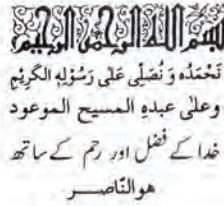 بسم الله الرحمن الرحيم
نَحْمَدُهٗ وَ نُصَلِّی عَلٰی رَسُوْلِهِ الْكَرِيْمِ
وعلٰی عبدهِ المسيح الموعود
خدا کے فضل اور رحم کے ساتھ
هو النّاصــر